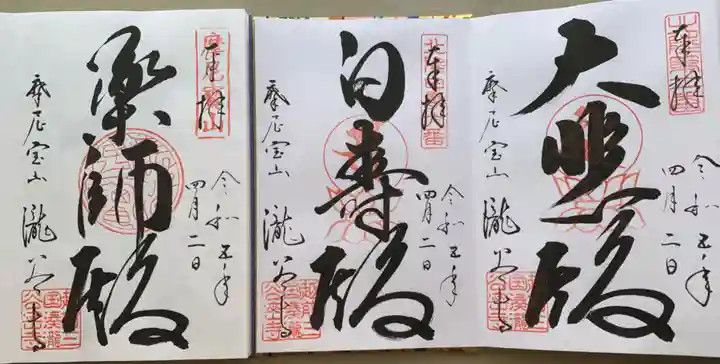 奉拝
令和五年
四月二日
大照殿
摩尼宝山 瀧谷寺
奉拝
令和五年
四月二日
白寿殿
摩尼宝山 瀧谷寺
奉拝
令和五年
四月二日
薬師殿
摩尼宝山 瀧谷寺